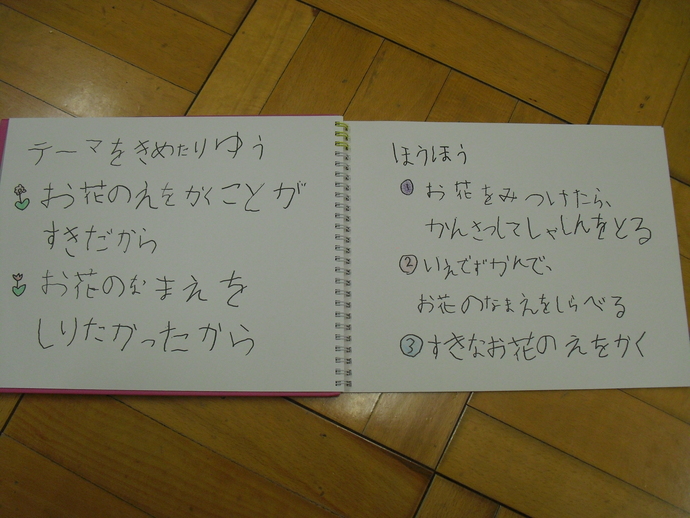 テーマをきめたりゆう
お花のえをかくことが
すきだから
お花のなまえを
しりたかったから
ほうほう
① お花をみつけたら、
かんさつしてしゃしんをとる
② いえでずかんで、
お花のなまえをしらべる
③ すきなお花のえをかく